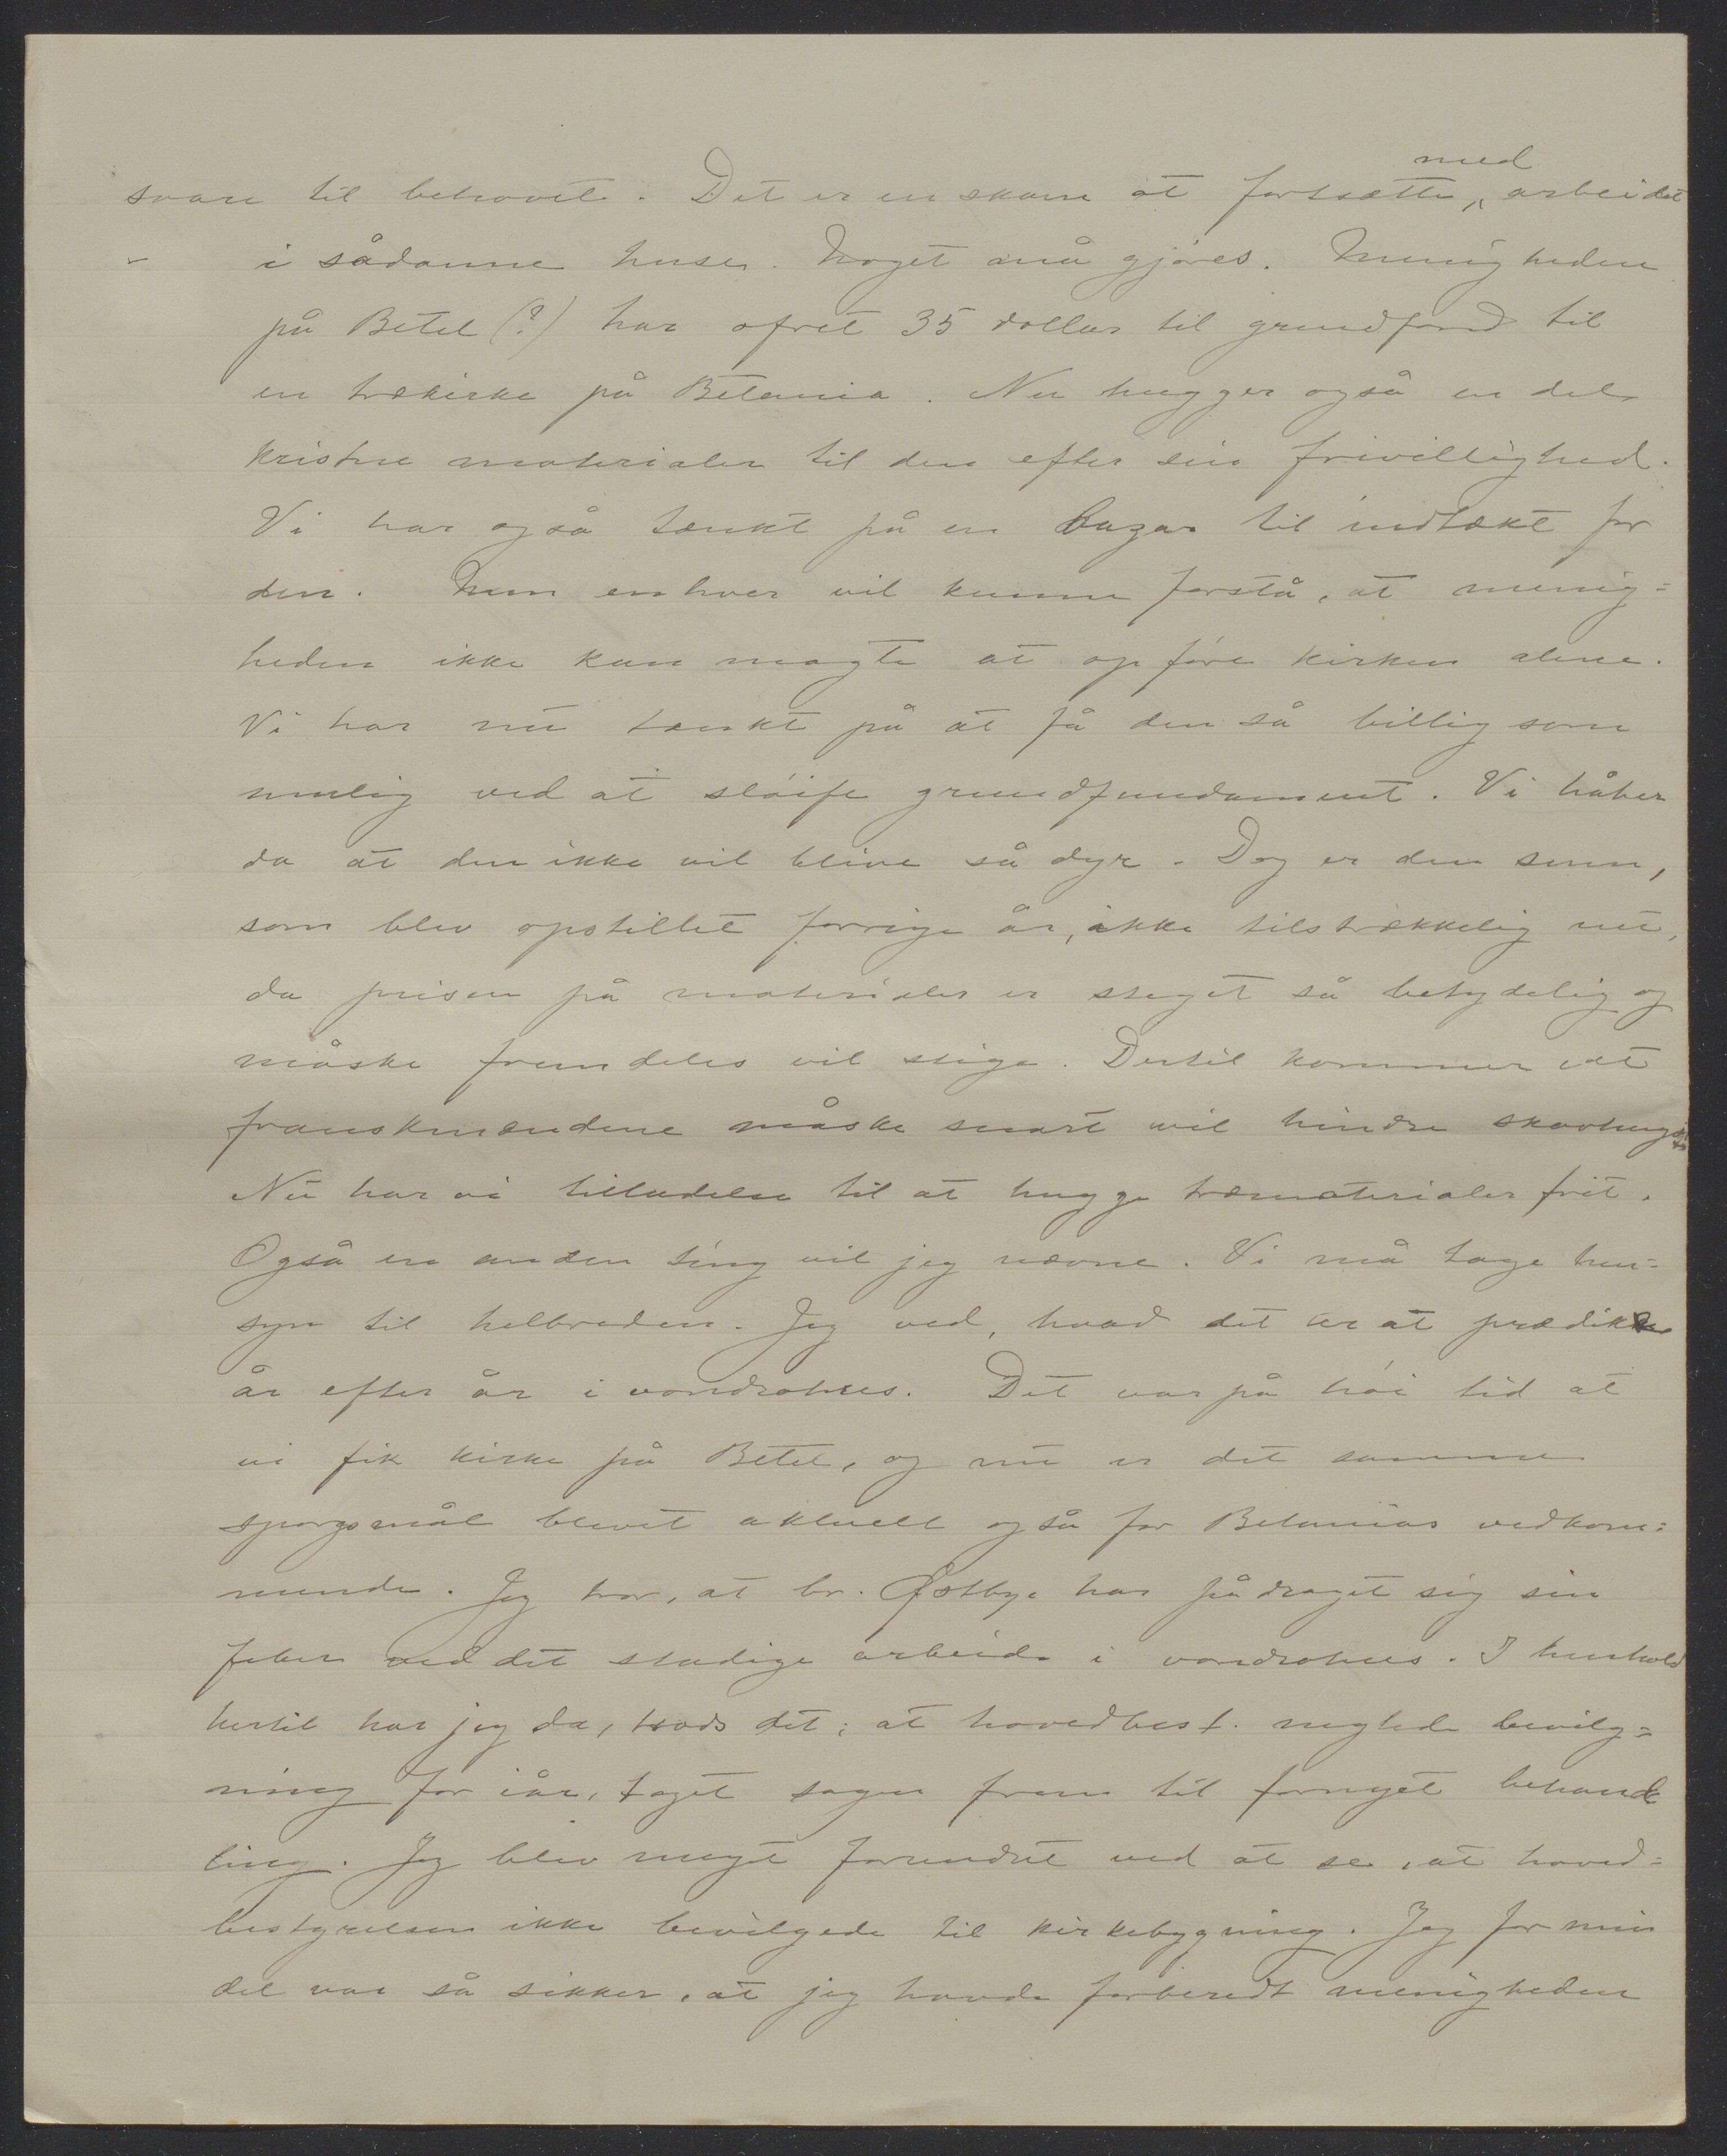 svare til behovet. Det er en skam at fortsætte med arbeidet
i sådanne huse. Noget må gjøres. Menigheden
på Betel (?) har ofret 35 dollar til grundfond til
en trækirke på Betania. Nu hugger også en del
kristne materialer til den efter sin frivillighed.
Vi har også tænkt på en bazar til indtækt for
den. Men enhver vil kunne forstå, at menig=
heden ikke kan magte at opføre kirken alene.
Vi har nu tænkt på at få den så billig som
mulig ved at sløife grundfundament. Vi håber
da at den ikke vil blive så dyr. Dog er den sum,
som blev opstillet forrige år, ikke tilstrækkelig nu,
da prisen på materialer er steget så betydelig og
måske fremdeles vil stige. Dertil kommer at
franskmændene måske snart vil hindre skovhugst.
Nu har vi tilladelse til at hugge træmaterialer frit.
Også en anden ting vil jeg nævne. Vi må tage hen=
syn til helbreden. Jeg ved, hvad det er at prædike
år efter år i vondrohus. Det var på høi tid at
vi fik kirke på Betel, og nu er det samme
spørgsmål blevet aktuelt også for Betanias vedkom=
mende. Jeg tror, at br. Østby har pådraget sig sin
feber ved det stadige arbeide i vondrohus. I henhold
hertil har jeg da, trods det, at hovedbest. negtede bevilg=
ning for iår, taget sagen frem til fornyet behand
ling. Jeg blev meget forundret ved at se, at hoved=
bestyrelsen ikke bevilgede til kirkebygning. Jeg for min
del var så sikker, at jeg havde forberedt menigheden